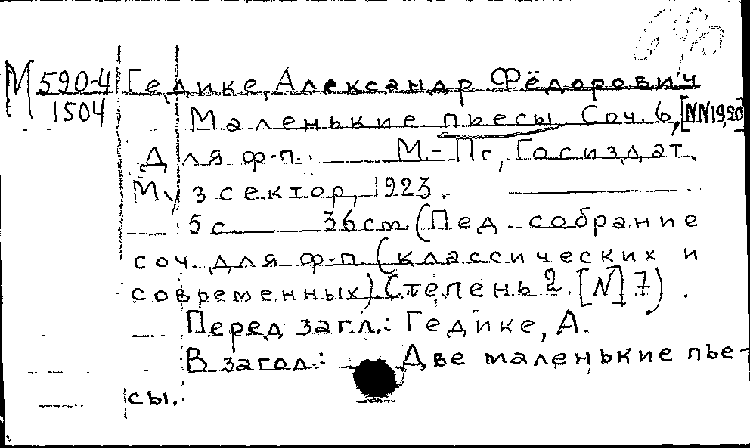 М 590-4 Гедике, Александр Фёдорович
1504 Маленькие пьесы. Соч. 6, [NN19,20]
Для ф-п. М.-Пг, Госиздат.
Муз сектор, 1923.
5 с 36 см (Пед. собрание
соч. для ф-п. (классических и
современных) Степень 2. [N] 7).
Перед загл.: Гедике, А.
В загол.: Две маленькие пье-
сы.